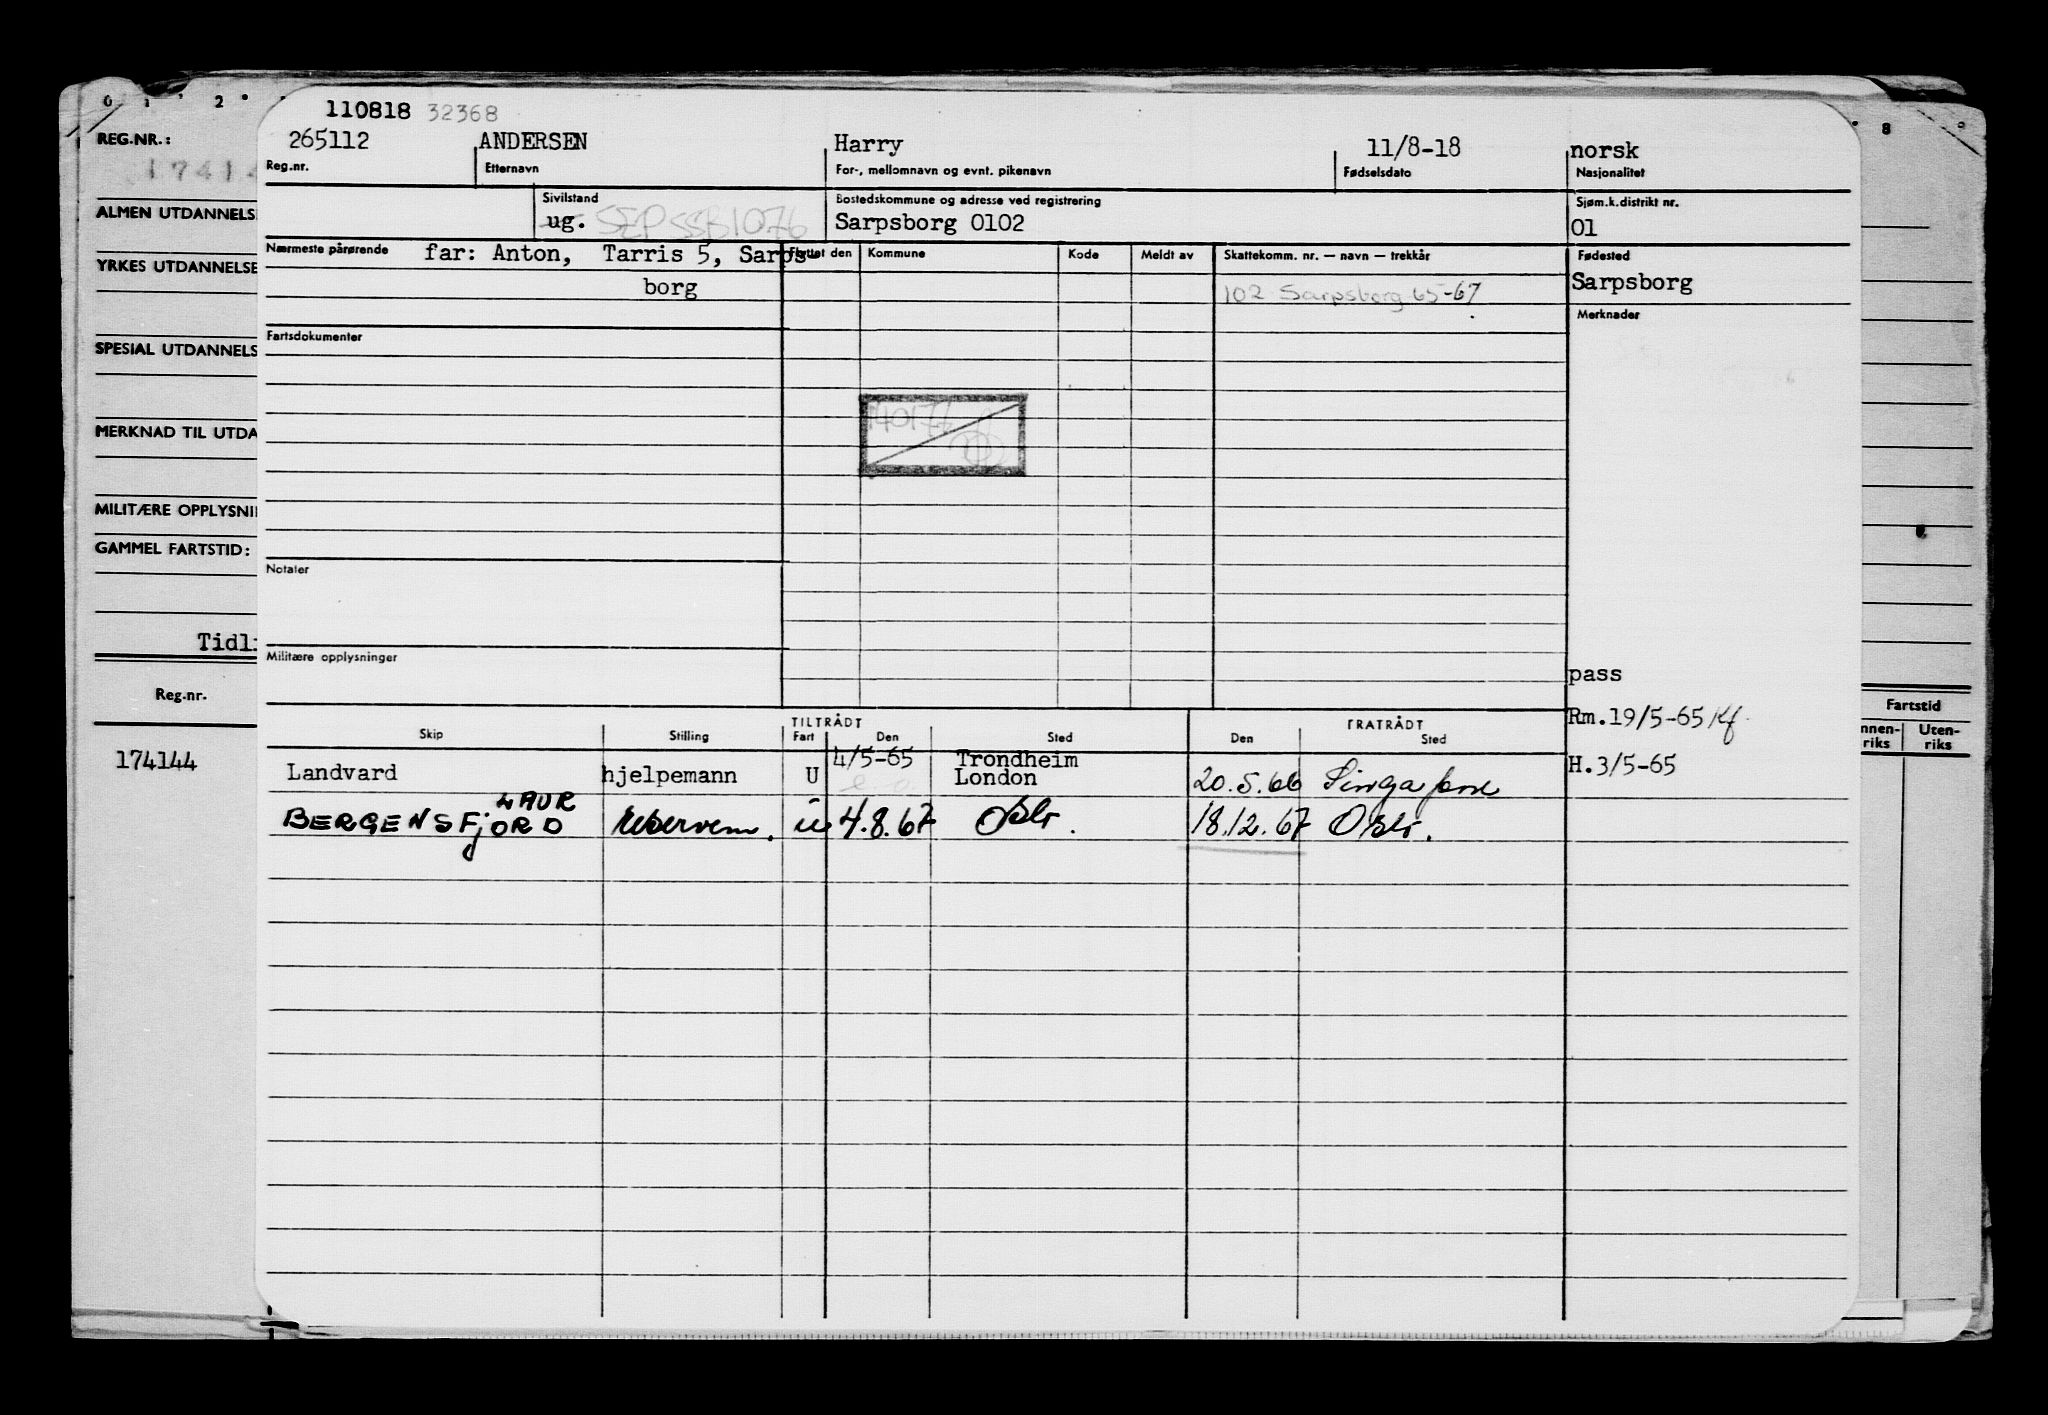 0 1 2 8 9
REG.NR.:
ALMEN UTDANNELS
YRKES UTDANNELSE
SPESIAL UTDANNELS
MERKNAD TIL UTDA
MILITÆRE OPPLYSNI
GAMMEL FARTSTID:
Tidl
Reg.nr.
174144
110818 32368
265112 ANDERSEN Harry 11/8-18 norsk
Reg.nr. Etternavn For-, mellomnavn og evnt. pikenavn Fødselsdato Nasjonalitet
Sivilstand Bostedskommune og adresse ved registrering Sjøm.k.distrikt nr.
ug. SEP SSB 1076 Sarpsborg 0102 01
Nærmeste pårørende far: Anton, Tarris 5, Sarps- Flyttet den Kommune Kode Meldt av Skattekomm. nr. — navn — trekkår Fødested
borg 102 Sarpsborg 65-67 Sarpsborg
Fartsdokumenter Merknader
Notater
Militære opplysninger
pass
Rm.19/5-65
H.3/5-65
TILTRÅDT FRATRÅDT
Skip Stilling Fart Den Sted Den Sted
Landvard hjelpemann U 4/5-65 Trondheim
London 20.5.66 Singapore
LAUR
BERGENSFJORD u 4.8.67 Oslo. 18.12.67 Oslo.
Fartstid
nnen-
riks
Uten-
riks